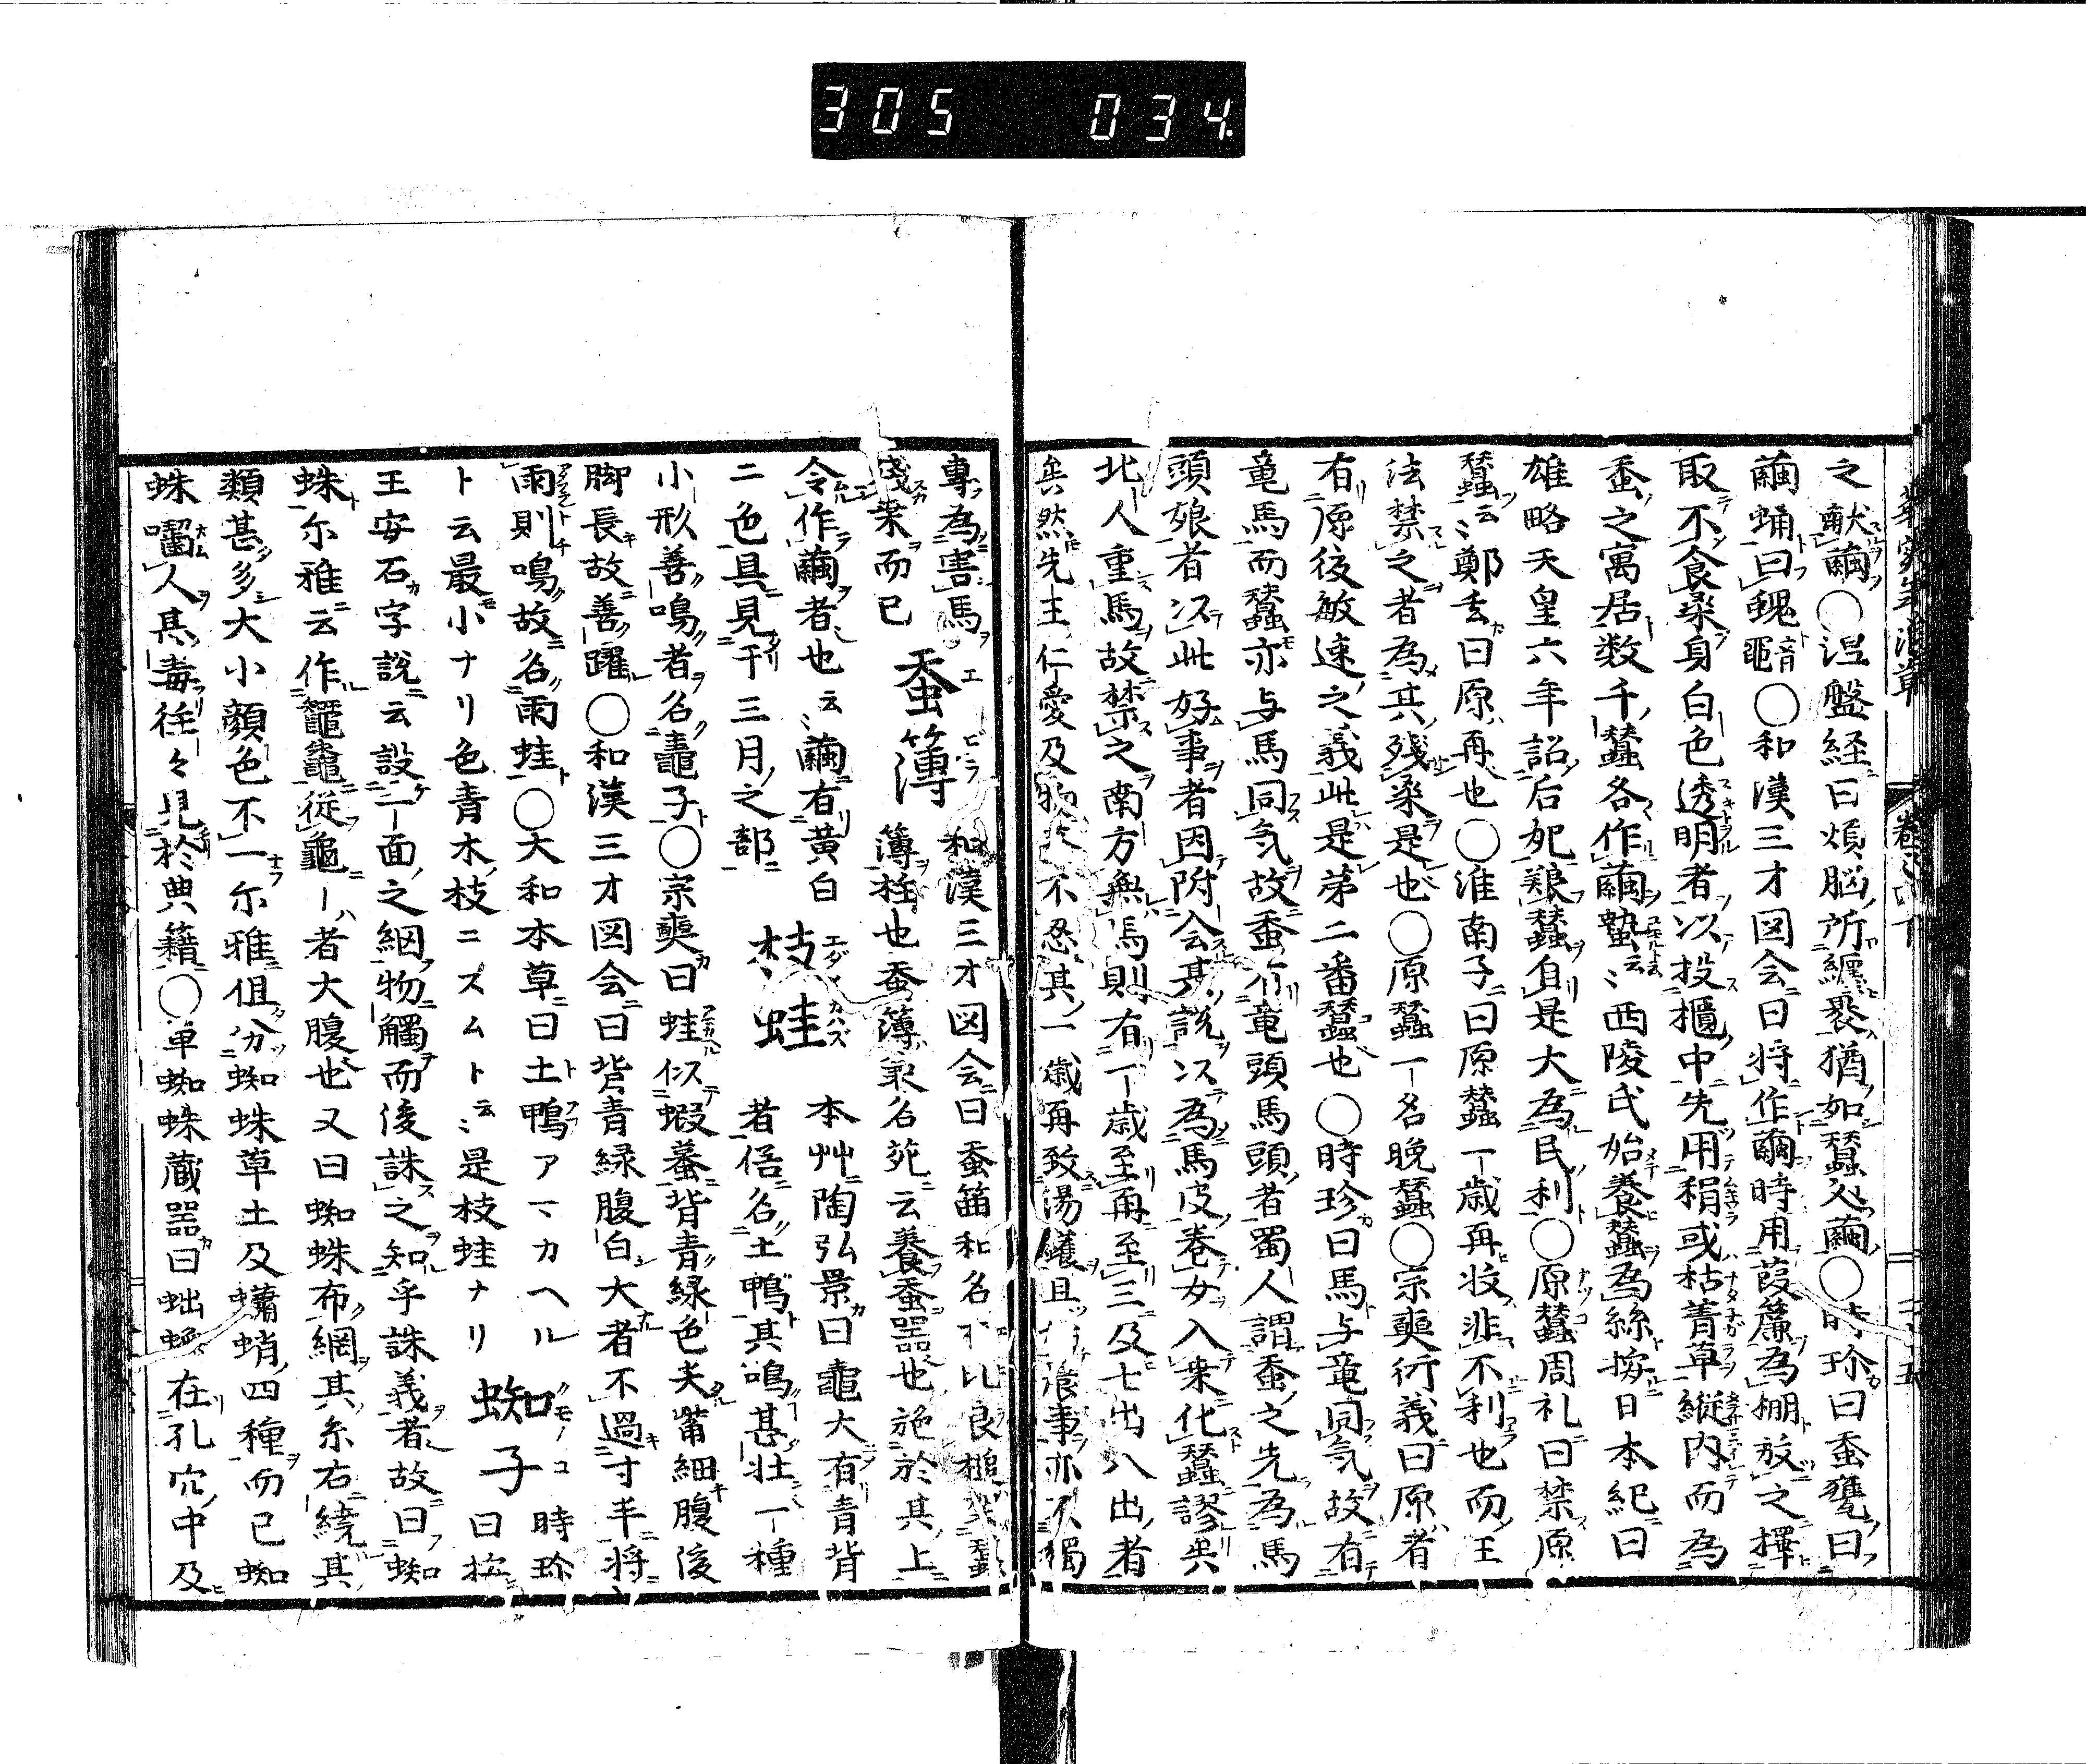 305 034
之献繭〇涅盤経曰煩脳所纏裹猶如蚕入繭〇時珍曰蚕甕曰
繭蛹曰䰟音龜〇和漢三才図会曰将作繭時用葭簾為棚放之擇
取不食桑身白色透明者以投櫃中先用稭或枯菁草縦内而為
蚕之寓居数千蠶各作繭蟄云〻西陵氏始養蠶為絲按日本紀曰
雄略天皇六年詔后妃親蠶自是大為民利〇原蠶周礼曰禁原
蠶云〻鄭玄曰原再也〇淮南子曰原蠶一歳再收非不利也而王
法禁之者為其残桑是也〇原蠶一名晩蠶〇宗奭衍義曰原者
有原復敏速之義此是第二番蠶也〇時珍曰馬与竜同気故有
竜馬而蠶亦与馬同気故蚕有竜頭馬頭者蜀人謂蚕之先為馬
頭娘者以此好事者因附会其説以為馬皮巻女入桑化蠶謬矣
北人重馬故禁之南方無馬則有一歳至再至三及七出八出者
矣然先王仁愛及物不忍其一歳再致湯鑊且事亦不獨
專為害馬
残桒而已 蚕簿 エビラ 和漢三才図会曰蚕笛和名 比良槌
簿栍也蚕簿 名苑云養蚕器也施於其上
令作繭者也云〻繭有黄白
二色具見于三月之部 枝蛙 エダノカハズ 本艸陶弘景曰鼃大有青背
者俉名土鴨其鳴甚壮一種
小形善鳴者名鼃子〇宗奭曰蛙似蝦蟇背青緑色尖觜細腹後
脚長故善躍〇和漢三才図会曰背青緑腹白大者不過寸半将
雨則鳴故名雨蛙〇大和本草曰土鴨アマカヘル
ト云最小ナリ色青木枝ニスムト云〻是枝蛙ナリ 蜘子 クモノコ 時珍
曰按
王安石字説云設一面之網物觸而後誅之知乎誅義者故曰蜘
蛛尓雅云作鼅鼄従黽ーハ者大腹也又曰蜘蛛布網其糸右繞其
類甚多大小顔色不一尓雅但分蜘蛛草土及蠨蛸四種而已蜘
蛛囓人甚毒往々見於典籍〇草蜘蛛蔵器曰在孔穴中及